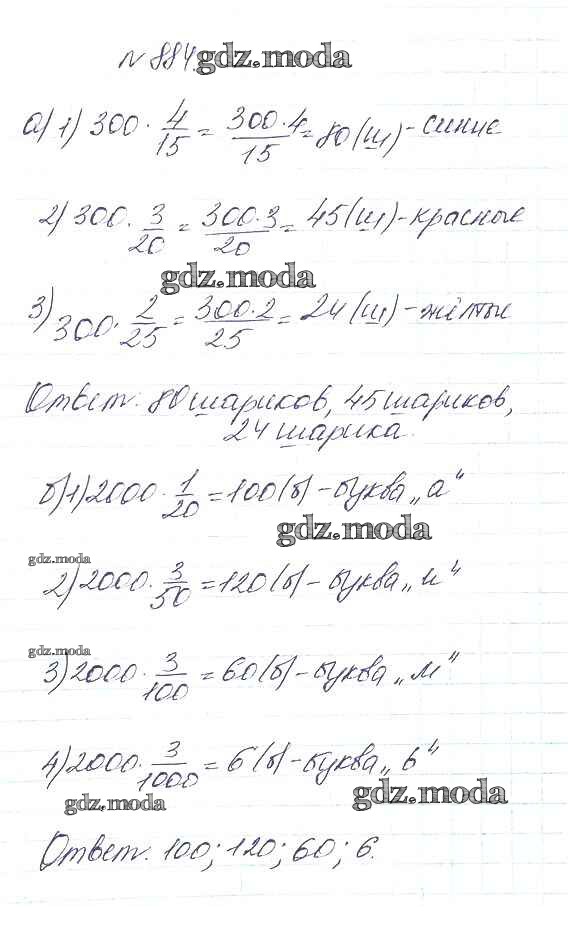 № 884. gdz.moda
а) 1) 300 · 4/15 = 300·4/15 = 80 (ш) - синие
2) 300 · 3/20 = 300·3/20 = 45 (ш) - красные
gdz.moda
3) 300 · 2/25 = 300·2/25 = 24 (ш) - жёлтые
Ответ: 80 шариков, 45 шариков,
24 шарика.
б) 1) 2000 · 1/20 = 100 (б) - буква „а“
gdz.moda
gdz.moda
2) 2000 · 3/50 = 120 (б) - буква „и“
gdz.moda
3) 2000 · 3/100 = 60 (б) - буква „м“
4) 2000 · 3/1000 = 6 (б) - буква „ь“
gdz.moda
gdz.moda
Ответ: 100; 120; 60; 6.